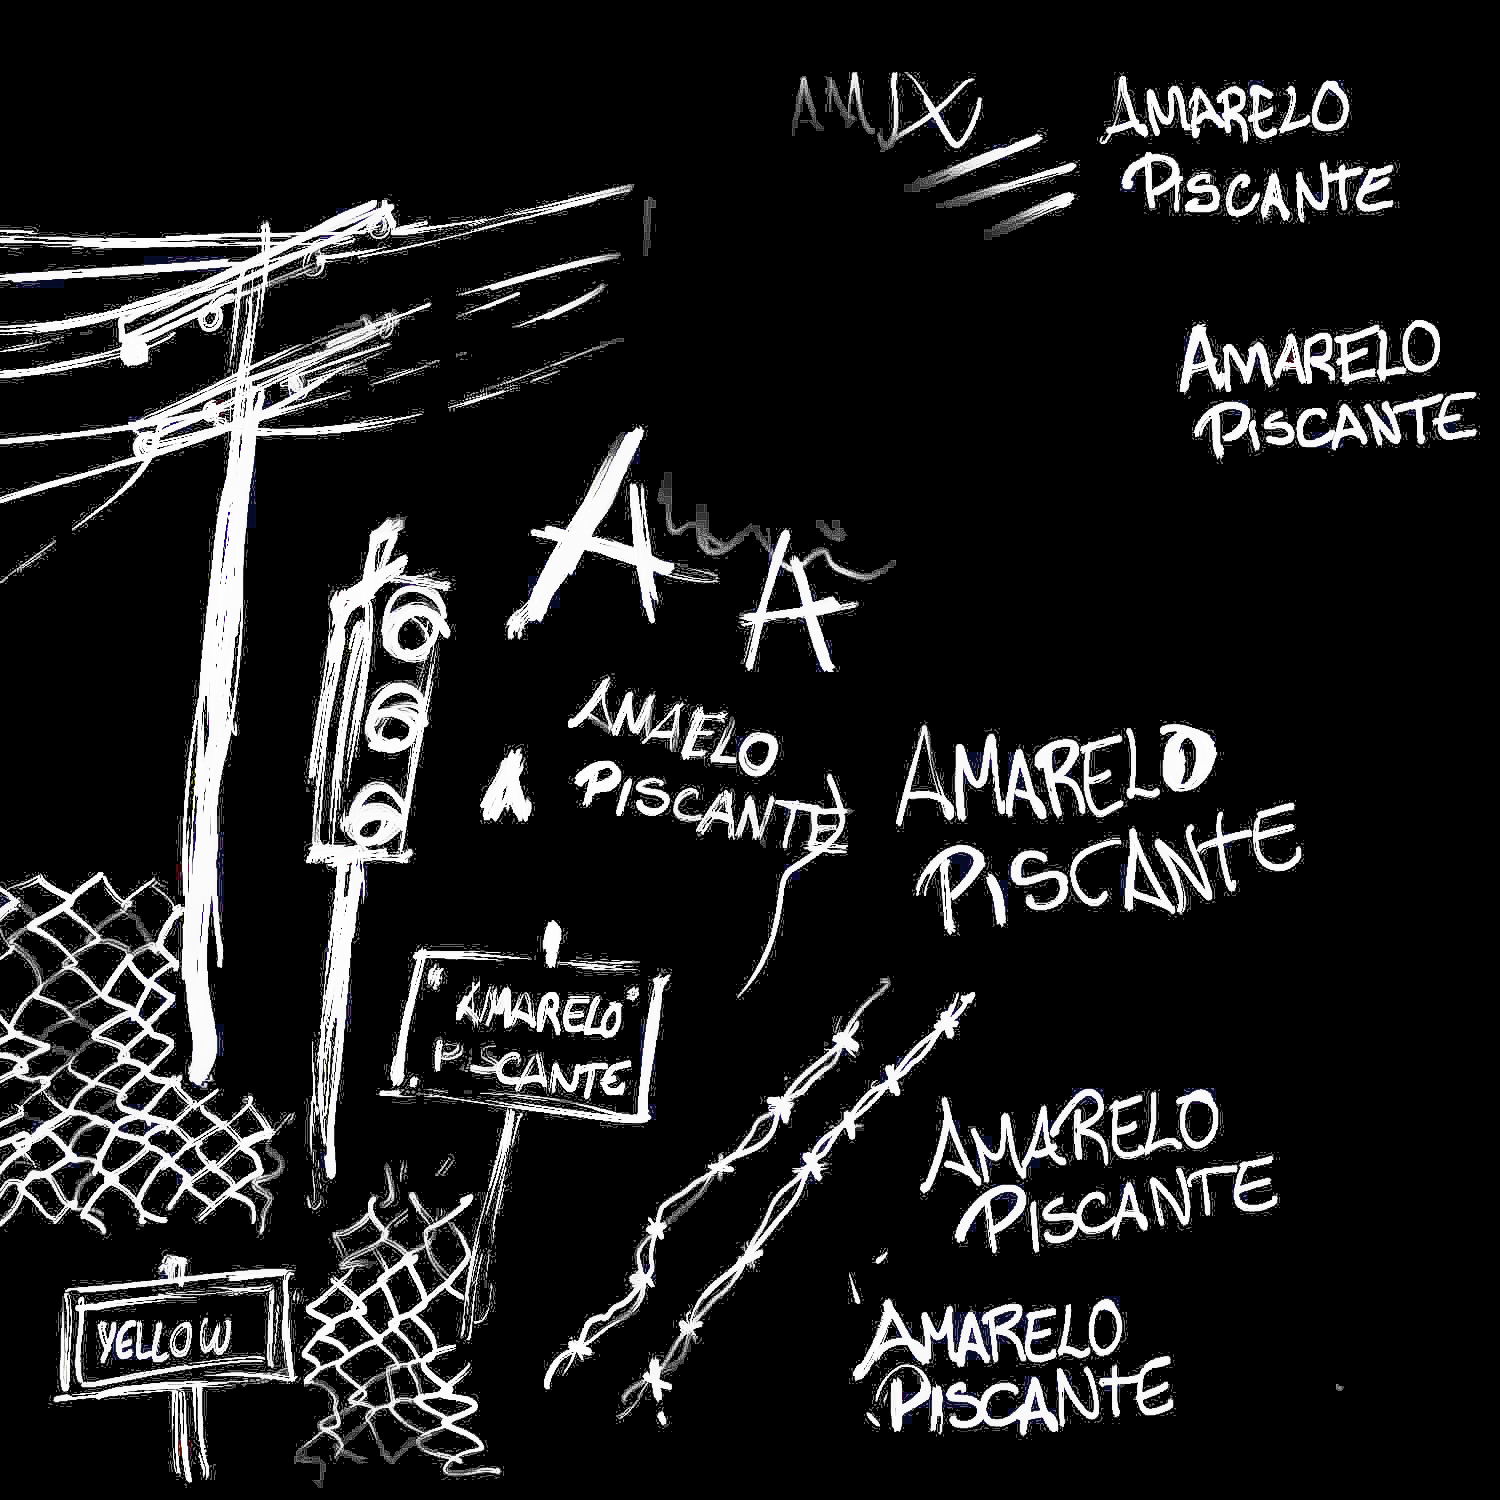 AMARELO
PISCANTE
AMARELO
PISCANTE
A
A
AMAELO
PISCANTE
AMARELO
PISCANTE
AMARELO
PISCANTE
AMARELO
PISCANTE
YELLOW
AMARELO
PISCANTE